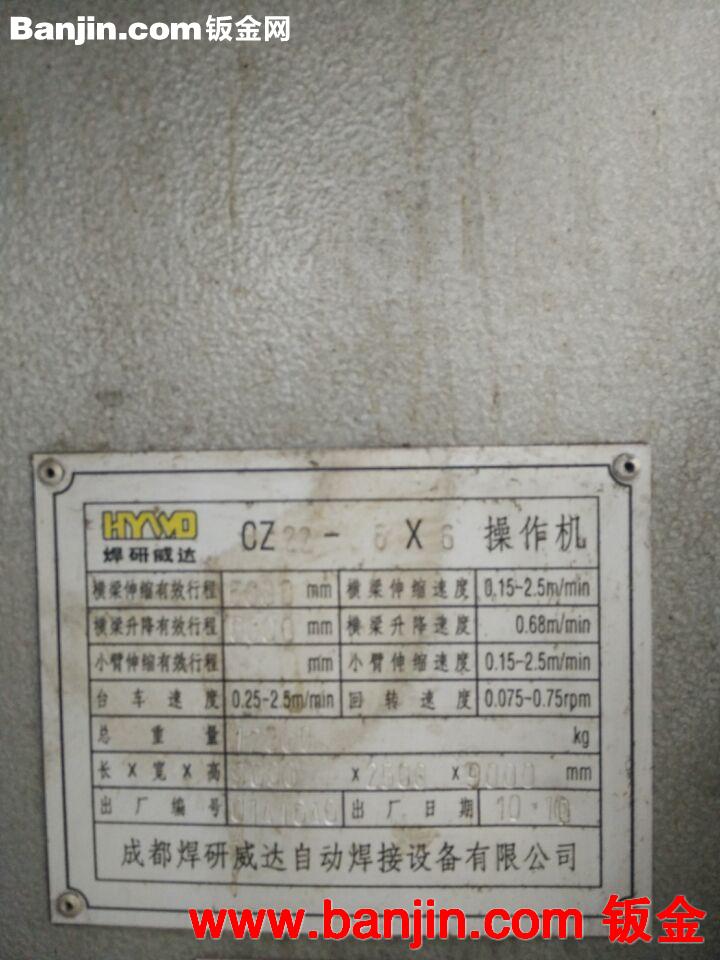 Banjin.com钣金网
HYWD
焊研威达
CZ22-5X6 操作机
横梁伸缩有效行程 mm 横梁伸缩速度 0.15-2.5m/min
横梁升降有效行程 mm 横梁升降速度 0.68m/min
小臂伸缩有效行程 mm 小臂伸缩速度 0.15-2.5m/min
台车速度 0.25-2.5m/min 回转速度 0.075-0.75rpm
总重量 kg
长X宽X高 x x 9000 mm
出厂编号 出厂日期 10.10
成都焊研威达自动焊接设备有限公司
www.banjin.com 钣金